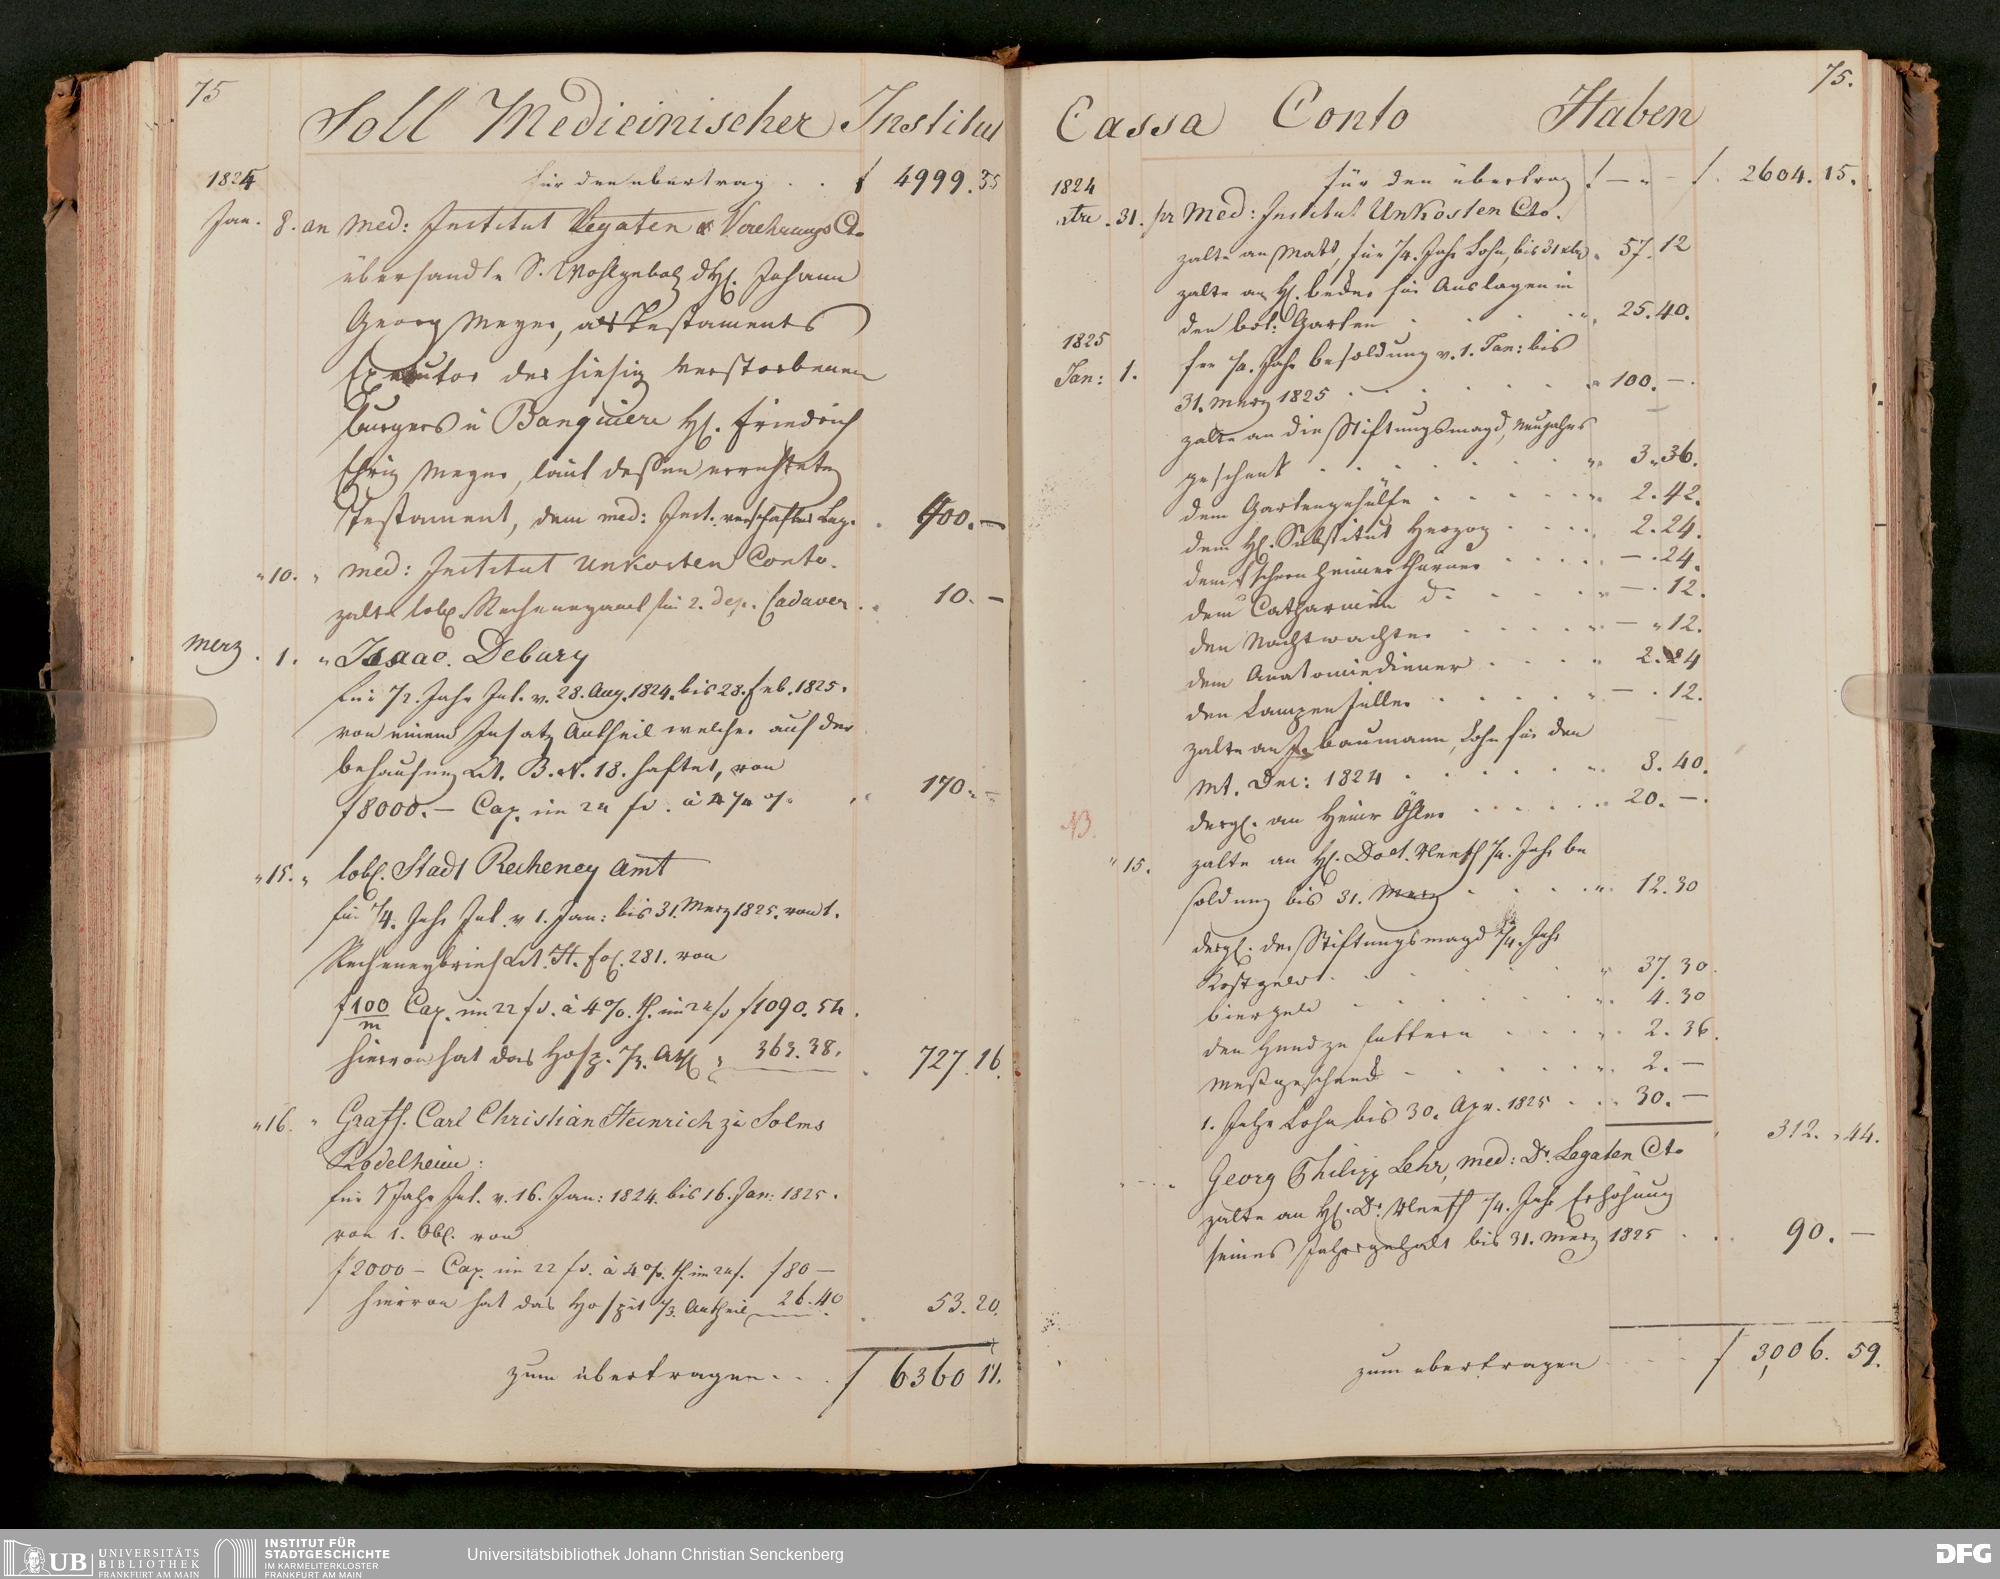 75
Soll Medicinischer Institut
1825
für den übertrag . . f 4999. 35
Jan. 8. an Med: Institut Legaten & Verehrungs Cto
übersandte S. Wohlgeb. d. H. Johann
Georg Meyer, als Testaments
Executor des hiesig verstorbenen
Burgers u Banquiers H. Friedrich
Meyer, laut dessen errichteten
Testament, dem med: Inst. Leg. . 400. —
" 10. " Med: Institut Unkosten Conto.
zalte löbl. Recheneyamt für 2. Cadaver . . 10. —
Merz . 1. " Isaac. Debary
für 1/2. Jahr Int. v. 28. Aug. 1824. bis 28. Feb. 1825.
von einem Insatz Antheil welcher auf der
behausung Lit. B. N. 18. haftet, von
f 8000. — Cap. im 24 f. à 4 1/4 % . . 170. —
" 15. " löbl. Stadt Recheney Amt
für 1/4. Jahr Int. v 1. Jan: bis 31. Merz 1825. von 1.
Recheneybrief Lit. H. fol. 281. von
f 100/m Cap. im 22 f. à 4 %. th. im 24 f. f 1090. 54.
hiervon hat das Hosp. 1/3. Anth. " 363. 38. . 727. 16.
" 16. " Graf. Carl Christian Heinrich zu Solms
Rödelheim:
für 1 Jahr Int. v. 16. Jan: 1824. bis 16. Jan: 1825.
von 1. Obl. von
f 2000 — Cap. im 22 f. à 4 %. th. im 24 f. f 80 —
hiervon hat das Hospit 1/3. Antheil 26. 40 . 53. 20.
zum übertragen . . . f 6360 11.
75.
Cassa Conto Haben
für den übertrag f — " — f. 2604. 15.
1824
31. pr Med: Institut Unkosten Cto.
zalte an Matt, für 1/4. Jahr Lohn, bis 31 . 57. 12
zalte an H. Beder für Auslagen in
den bot: Garten . . . . 25. 40.
1825
Jan: 1. 1/4. Jahr besoldung v. 1. Jan: bis
31. Merz 1825 . . . . " 100. —.
zalte an die Stiftungsmagd, Neujahrs
geschenk . . . . " 3. 36.
dem Gartengehülfe . . . . 2. 42.
dem H. Substitut Herzog . . . . 2. 24.
dem Eschernheimerthürner . . . . — . 24.
dem Catharinen do . . . . " — . 12.
den Nachtwachter . . . . " — " 12.
dem Anatomiediener . . . . " 2. 24
den Lampenfüller . . . . " — . 12.
zalte an J. Baumann, Lohn für den
Mt. Dec: 1824 . . . . 8. 40.
dergl. an Heinr Öhler . . . . 20. —.
NB.
" 15. zalte an H. Doct. Neeff 1/4. Jahr be
soldung bis 31. Merz . . . . " 12. 30
dergl. der Stiftungsmagd 1/4. Jahr
Kostgeld . . . . " 37. 30.
biergeld . . . . " 4. 30
den Hund zu futtern . . . . " 2. 36.
Meßgeschenk . . . . " 2. —
1. Jahr Lohn bis 30. Apr. 1825 . . . 30. —
312. " 44.
Georg Philipp Lehr, med: Dr. Legaten Cto
zalte an H. Dr. Neeff 1/4. Jahr Erhöhung
seines Jahrgehalt bis 31. Merz 1825 . . . 90. —
zum übertragen . . . . f 3,006. 59.
UB UNIVERSITÄTS
BIBLIOTHEK
FRANKFURT AM MAIN
INSTITUT FÜR
STADTGESCHICHTE
IM KARMELITERKLOSTER
FRANKFURT AM MAIN
Universitätsbibliothek Johann Christian Senckenberg
DFG